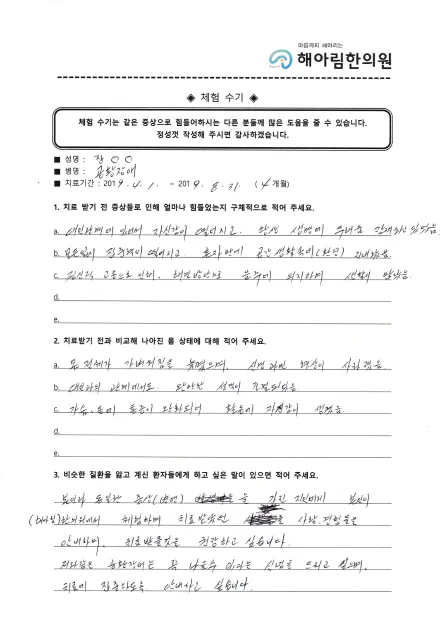 마음까지 헤아리는
해아림한의원
◈ 체험 수기 ◈
체험 수기는 같은 증상으로 힘들어하시는 다른 분들께 많은 도움을 줄 수 있습니다.
정성껏 작성해 주시면 감사하겠습니다.
■ 성명 : 장 ○ ○
■ 병명 : 공황장애
■ 치료기간 : 2019. 4. 1. ~ 2019. 8. 31. ( 4 개월)
1. 치료 받기 전 증상들로 인해 얼마나 힘들었는지 구체적으로 적어 주세요.
a. 대인관계에 있어서 자신감이 떨어지고. 항상 생명에
b. 모든일에 집중력이 떨어지고. 혼자만에 공간 생활속에
c. 정신적 고통으로 인해. 해결방안으로 술에 의지하며 생활이 많았음.
d.
e.
2. 치료받기 전과 비교해 나아진 몸 상태에 대해 적어 주세요.
a. 몸 전체가 가벼워짐을 느꼈으며, 신경과민 현상이 사라졌음
b. 대인과의 관계에서도. 성격이
c. 가슴, 등에 통증이 완화되어 활동에 자신감이 생겼음.
d.
e.
3. 비슷한 질환을 앓고 계신 환자들에게 하고 싶은 말이 있으면 적어 주세요.
본인과 동일한 증상(병명) 을 가진 지인에게 본인이
(해아림)한의원에서 체험하며 치료받았던 사항. 경험들을
안내하며, 치료 받을것을 권장하고 싶습니다.
꼭 나을수 있다는 신념을 드리고 싶으며,
치료에 집중하도록 안내하고 싶습니다.